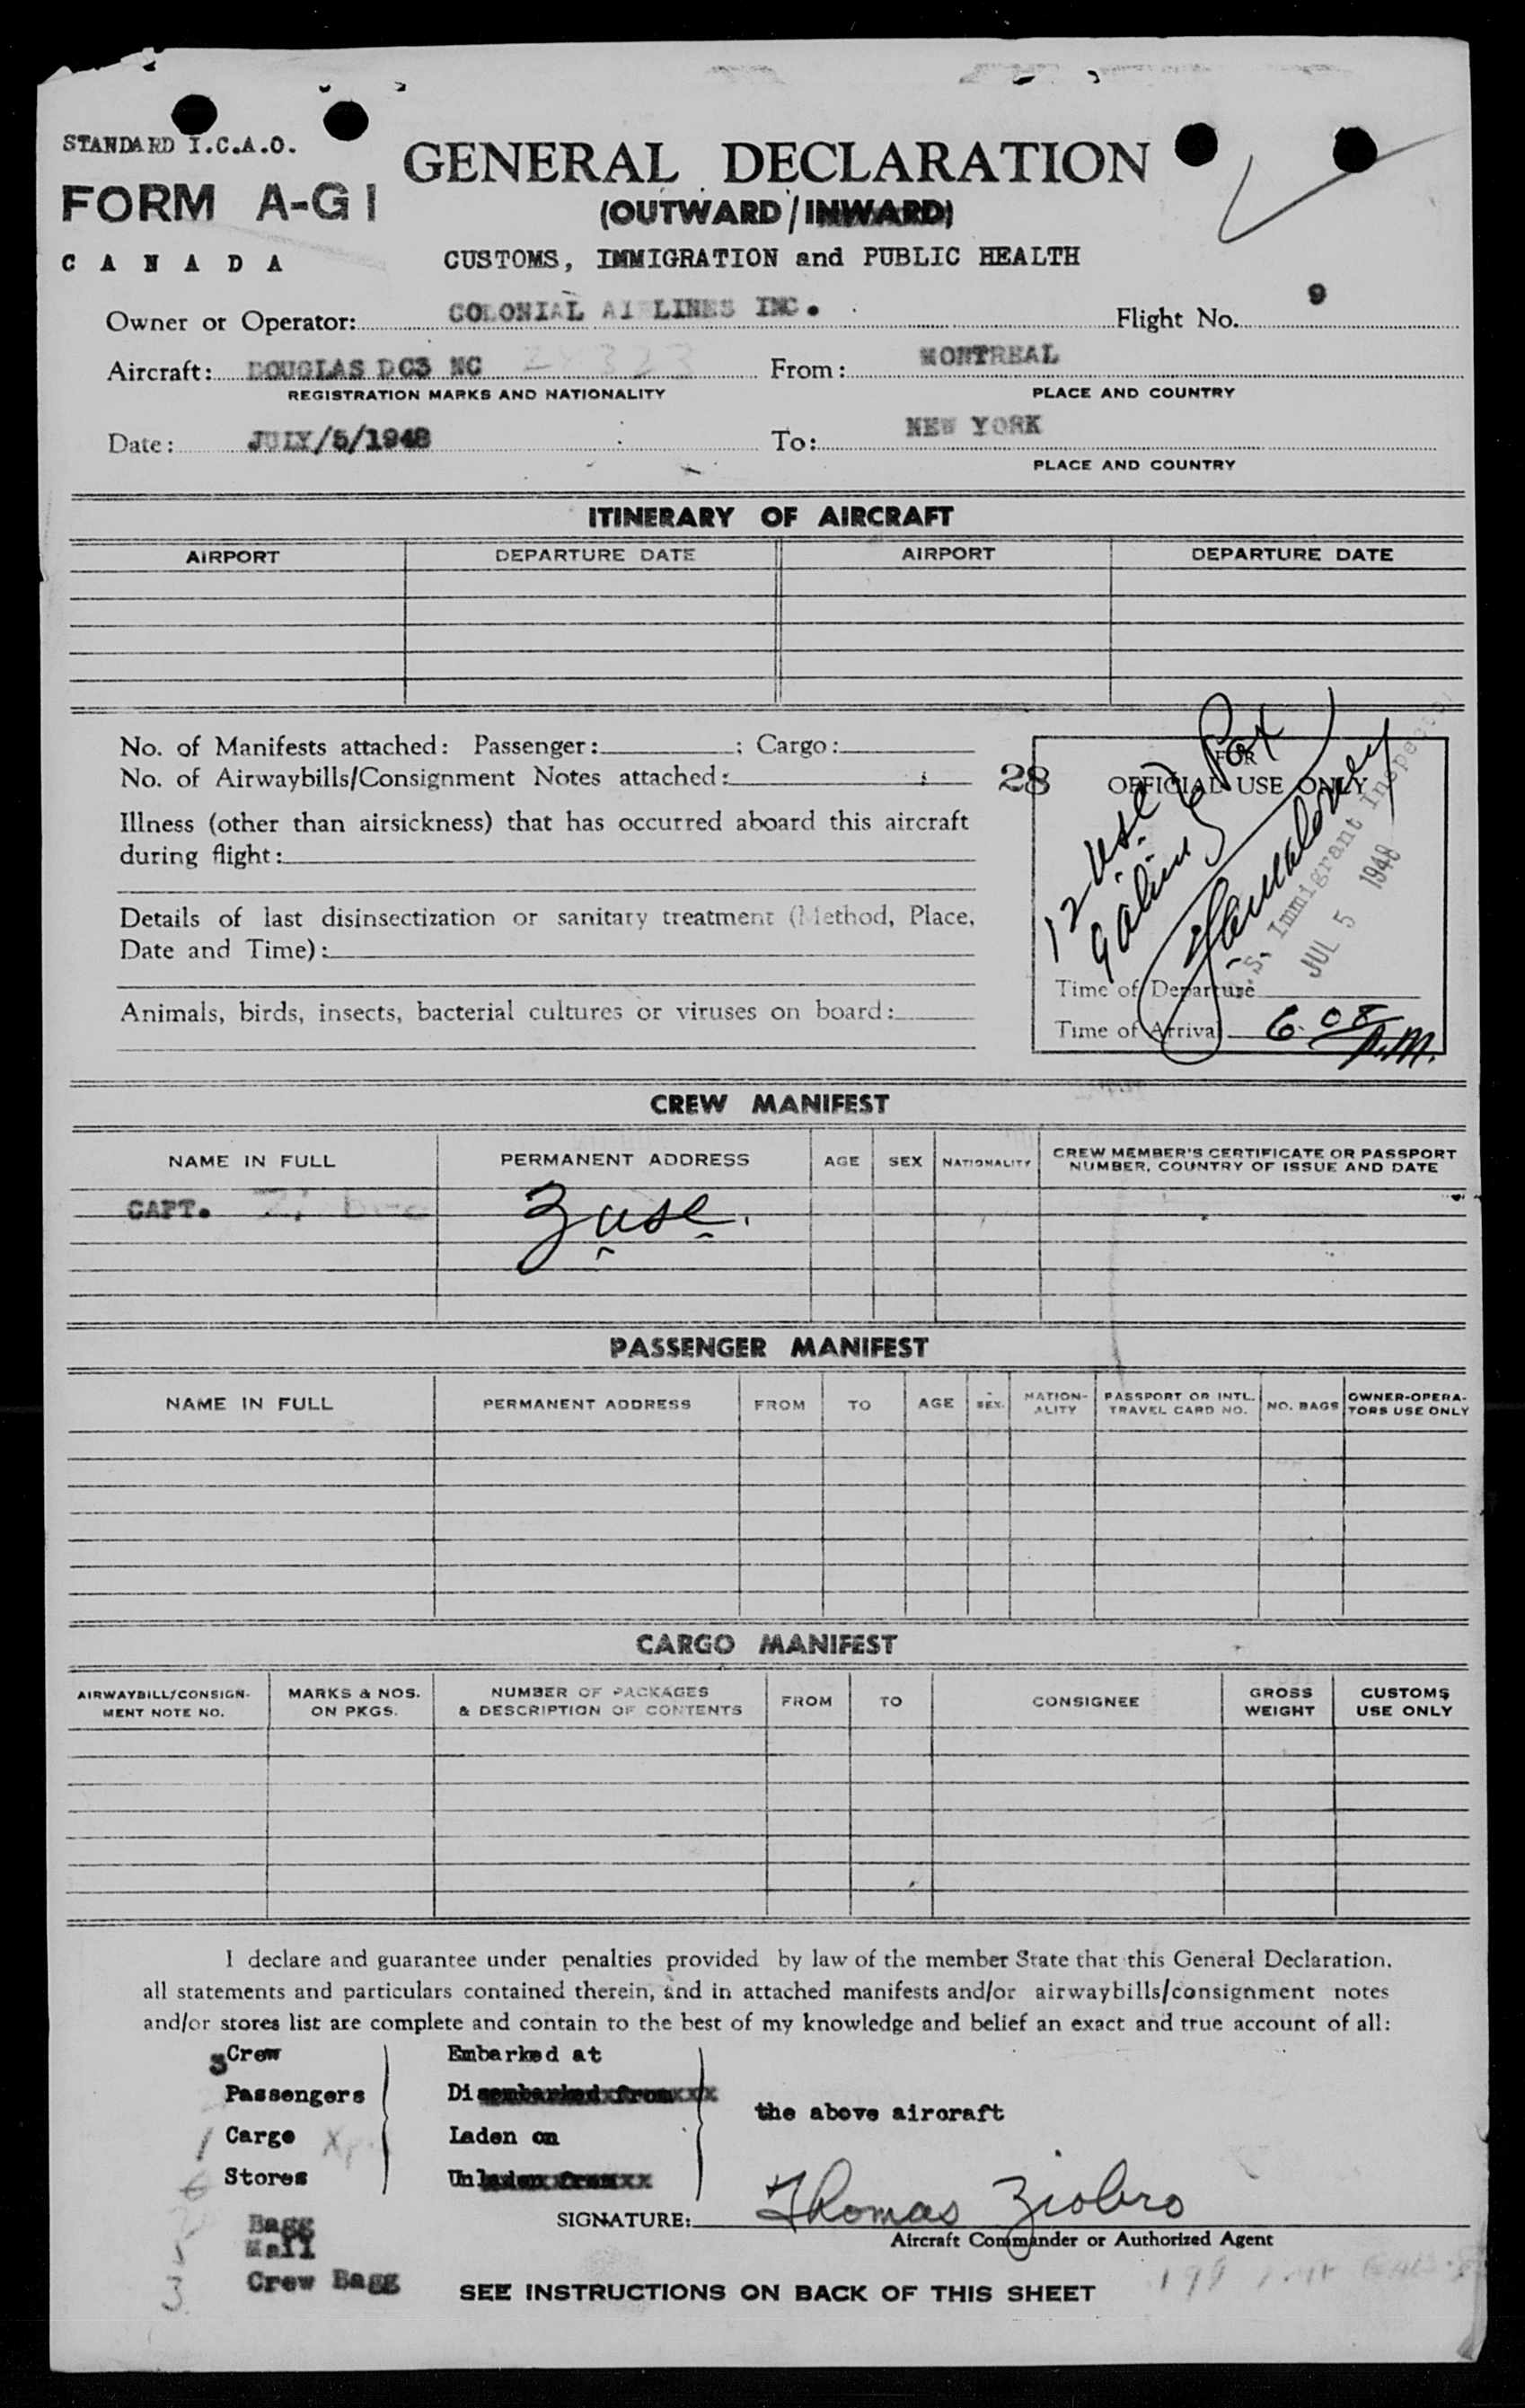 STANDARD I.C.A.O.
FORM A-G1
CANADA
GENERAL DECLARATION
(OUTWARD/INWARD)
CUSTOMS, IMMIGRATION and PUBLIC HEALTH
Owner or Operator: COLONIAL AIRLINES INC. Flight No. 9
Aircraft: DOUGLAS DC3 NC From: MONTREAL
REGISTRATION MARKS AND NATIONALITY PLACE AND COUNTRY
Date: JULY/5/1948 To: NEW YORK
PLACE AND COUNTRY
ITINERARY OF AIRCRAFT
AIRPORT DEPARTURE DATE AIRPORT DEPARTURE DATE
No. of Manifests attached: Passenger: ; Cargo:
No. of Airwaybills/Consignment Notes attached: ;
Illness (other than airsickness) that has occurred aboard this aircraft
during flight:
Details of last disinsectization or sanitary treatment (Method, Place,
Date and Time):
Animals, birds, insects, bacterial cultures or viruses on board:
28
FOR
OFFICIAL USE ONLY
12 usc
9 alins
Pax
U.S. Immigrant Inspector
JUL 5 1948
Time of Departure
Time of Arrival 6 08 P.M.
CREW MANIFEST
NAME IN FULL PERMANENT ADDRESS AGE SEX NATIONALITY CREW MEMBER'S CERTIFICATE OR PASSPORT
NUMBER, COUNTRY OF ISSUE AND DATE
CAPT. 3 usc.
PASSENGER MANIFEST
NAME IN FULL PERMANENT ADDRESS FROM TO AGE SEX NATION-
ALITY PASSPORT OR INTL.
TRAVEL CARD NO. NO. BAGS OWNER-OPERA-
TORS USE ONLY
CARGO MANIFEST
AIRWAYBILL/CONSIGN-
MENT NOTE NO. MARKS & NOS.
ON PKGS. NUMBER OF PACKAGES
& DESCRIPTION OF CONTENTS FROM TO CONSIGNEE GROSS
WEIGHT CUSTOMS
USE ONLY
I declare and guarantee under penalties provided by law of the member State that this General Declaration.
all statements and particulars contained therein, and in attached manifests and/or airwaybills/consignment notes
and/or stores list are complete and contain to the best of my knowledge and belief an exact and true account of all:
3 Crew Embarked at
Passengers Disembarked from
the above aircraft
1 Cargo Laden on
6 Stores Unladen from
Bagg
Mail
3 Crew Bagg
SIGNATURE: Thomas Ziobro
Aircraft Commander or Authorized Agent
SEE INSTRUCTIONS ON BACK OF THIS SHEET